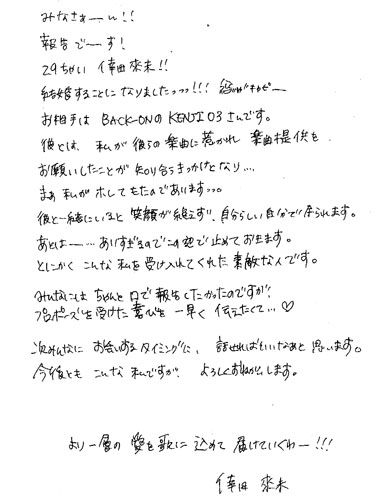 みなさぁーん!!
報告でーす!
29ちゃい 倖田來未!!
結婚することになりましたっっっ!!!
お相手は BACK-ONのKENJI03さんです。
彼とは、私が彼らの楽曲に惹かれ 楽曲提供を
お願いしたことが 知り合うきっかけとなり…
まぁ 私がホレてもたのであります。
彼と一緒にいると 笑顔が絶えず、自分らしい自分で居られます。
あとはー…ありすぎるのでこの辺で止めておきます。
とにかく こんな私を受け入れてくれた 素敵な人です。
みんなには ちゃんと口で報告したかったのですが、
プロポーズを受けた喜びを 一早く 伝えたくて…♡
次みんなに お会いするタイミングに、 話せればいいなあと 思います。
今後とも こんな私ですが、 よろしくお願いします。
より一層の 愛を歌に 込めて 届けていくわー!!!
倖田 來未